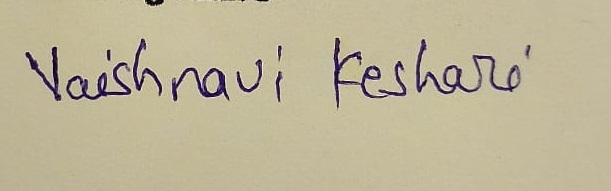 Vaishnavi Keshari